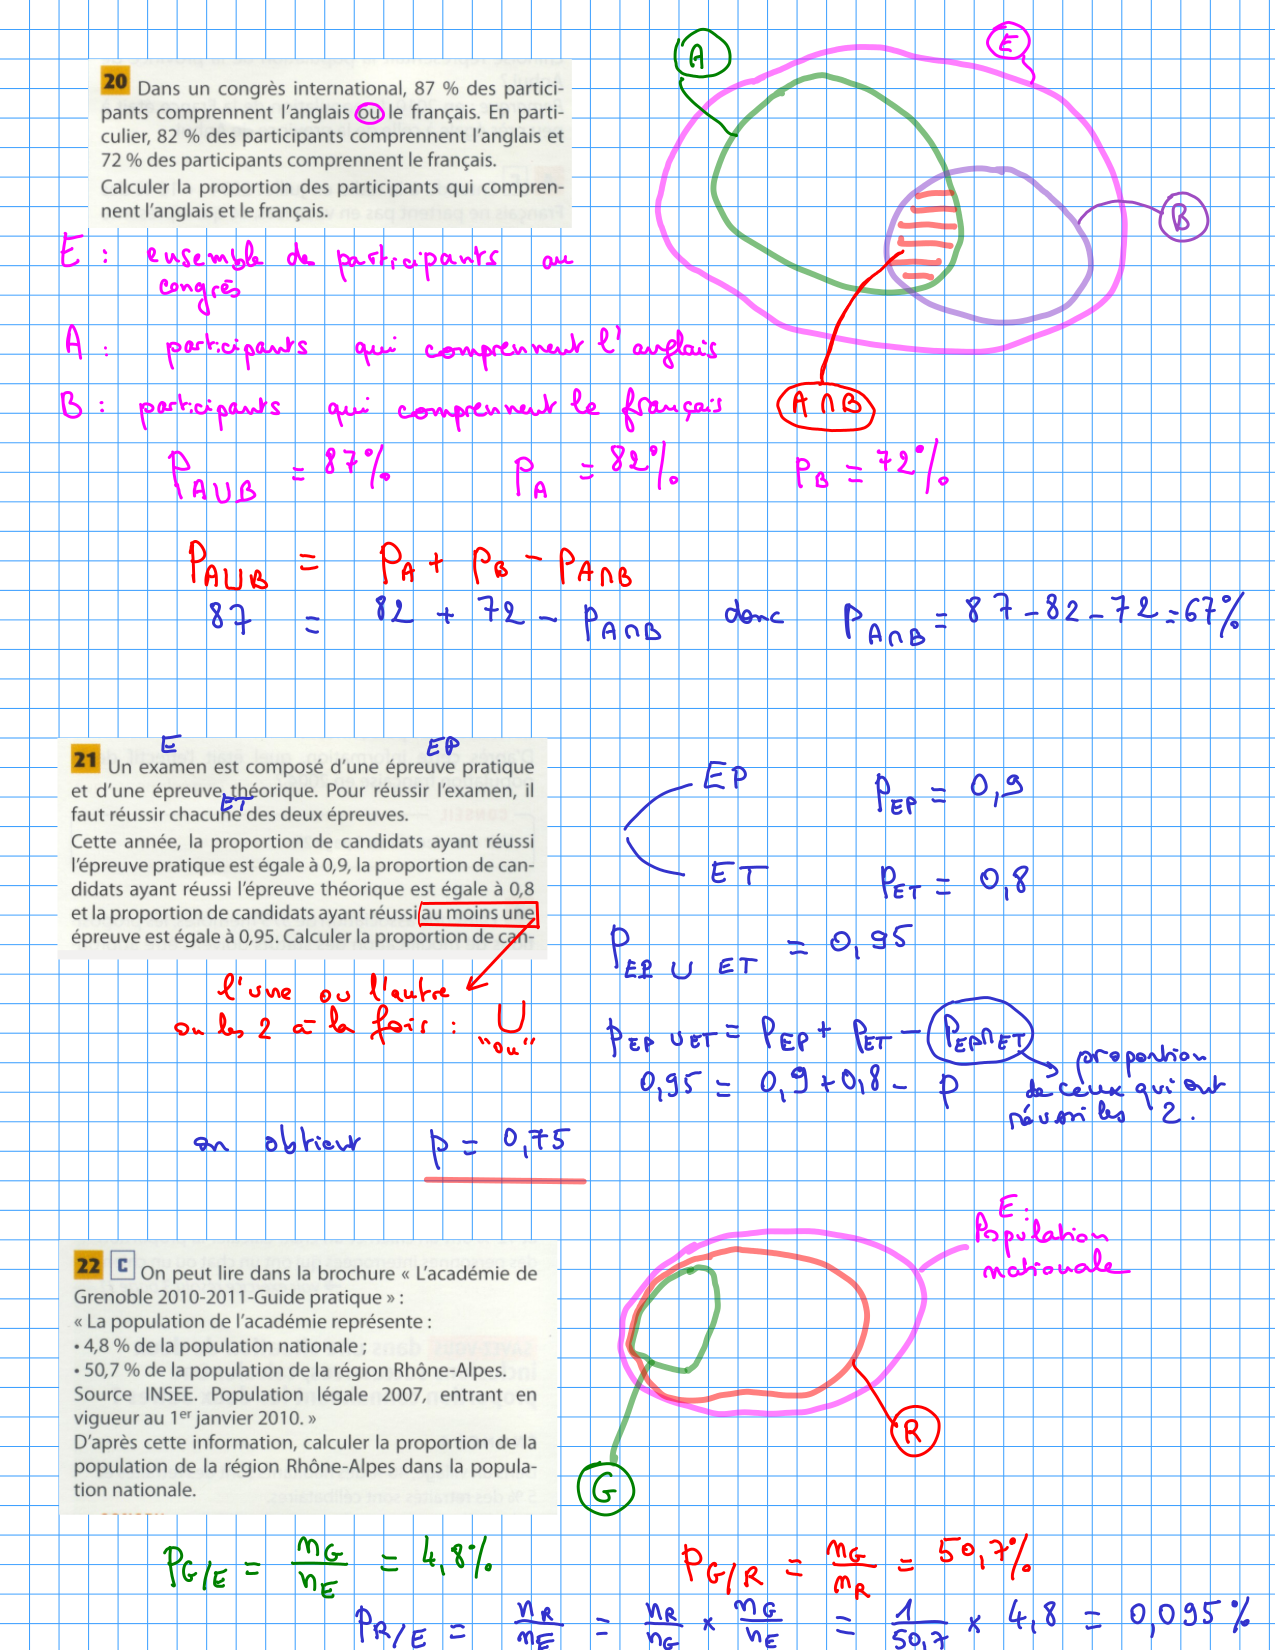 A
E
20 Dans un congrès international, 87 % des partici-
pants comprennent l'anglais ou le français. En parti-
culier, 82 % des participants comprennent l'anglais et
72 % des participants comprennent le français.
Calculer la proportion des participants qui compren-
nent l'anglais et le français.
B
E : ensemble de participants au
congrès
A : participants qui comprennent l'anglais
B : participants qui comprennent le français
A∩B
P A∪B = 87% P A = 82% P B = 72%
P A∪B = P A + P B - P A∩B
87 = 82 + 72 - P A∩B donc P A∩B = 87 - 82 - 72 = 67%
E EP
21 Un examen est composé d'une épreuve pratique
et d'une épreuve théorique. Pour réussir l'examen, il
ET
faut réussir chacune des deux épreuves.
Cette année, la proportion de candidats ayant réussi
l'épreuve pratique est égale à 0,9, la proportion de can-
didats ayant réussi l'épreuve théorique est égale à 0,8
et la proportion de candidats ayant réussi au moins une
épreuve est égale à 0,95. Calculer la proportion de can-
EP P EP = 0,9
ET P ET = 0,8
P EP ∪ ET = 0,95
l'une ou l'autre
ou les 2 à la fois : ∪
"ou"
P EP ∪ ET = P EP + P ET - P EP∩ET
0,95 = 0,9 + 0,8 - P
proportion
de ceux qui ont
réussi les 2.
on obtient p = 0,75
E :
Population
nationale
22 C On peut lire dans la brochure « L'académie de
Grenoble 2010-2011-Guide pratique » :
« La population de l'académie représente :
• 4,8 % de la population nationale ;
• 50,7 % de la population de la région Rhône-Alpes.
Source INSEE. Population légale 2007, entrant en
vigueur au 1er janvier 2010. »
D'après cette information, calculer la proportion de la
population de la région Rhône-Alpes dans la popula-
tion nationale.
R
G
P G/E = n G / n E = 4,8% P G/R = n G / n R = 50,7%
P R/E = n R / n E = n R / n G × n G / n E = 1 / 50,7 × 4,8 = 0,095%